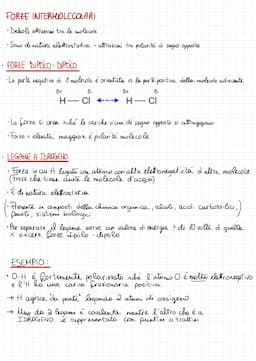 FORZE INTERMOLECOLARI
· Deboli attrazioni tra le molecole
· Sono di natura elettrostatica - attrazioni tra polarità di segno opposto
· FORZE DIPOLO - DIPOLO
· La parte negativa di 1 molecola è orientata vs la parte positiva della molecola adiacente
δ+ δ- δ+ δ-
H — Cl H — Cl
· La forza si crea xchè le cariche vicine di segno opposto si attraggono
· Forza + elevata maggiore è polarità molecole
· LEGAME A IDROGENO
· Forza in cui H legato con atomo con alta elettronegatività di altra molecola
(forza che tiene unite le molecole d'acqua)
· È di natura elettrostatica
· Presente in composti della chimica organica, alcoli, acidi carbossilici,
fenoli, sistemi biologici
· Per separare il legame serve un valore di energia > di 10 volte di quella
x vincere forze dipolo - dipolo
ESEMPIO:
· O-H è fortemente polarizzato xchè l'atomo O è molto elettronegativo
e l'H ha una carica frazionaria positiva
→ H agisce da ponte legando 2 atomi di ossigeno
→ Uno dei 2 legami è covalente mentre l'altro che è a
IDROGENO è rappresentato con puntini o trattini